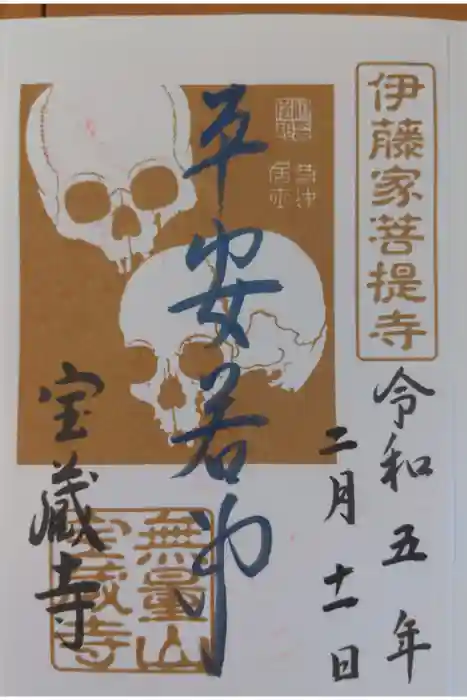 伊藤家菩提寺
令和五年
二月十一日
若冲居士
平安若冲
無量山
宝蔵寺
宝蔵寺